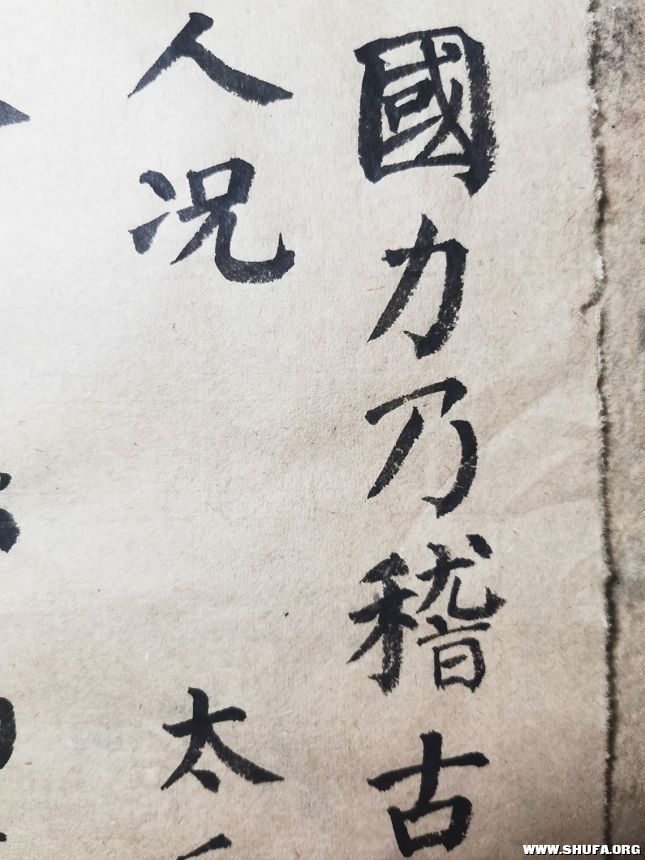 國力乃稽古
人况
太
WWW.SHUFA.ORG